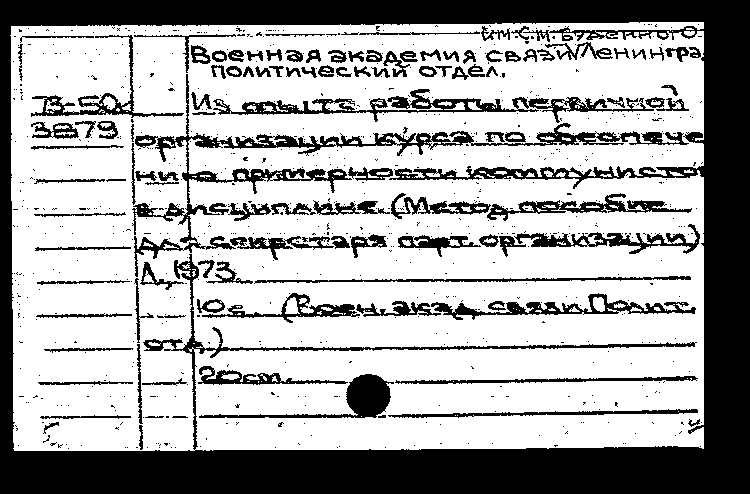 им. С.М. Буденного
Военная академия связи Ленингра
политический отдел.
В-50
3879
Из опыта работы первичной
организации курса по обеспече
нию примерности коммунистов
в дисциплине. (Метод. пособие
для секретаря парт. организации).
Л., 1973.
10 с. (Воен. акад. связи. Полит.
отд.)
20 см.